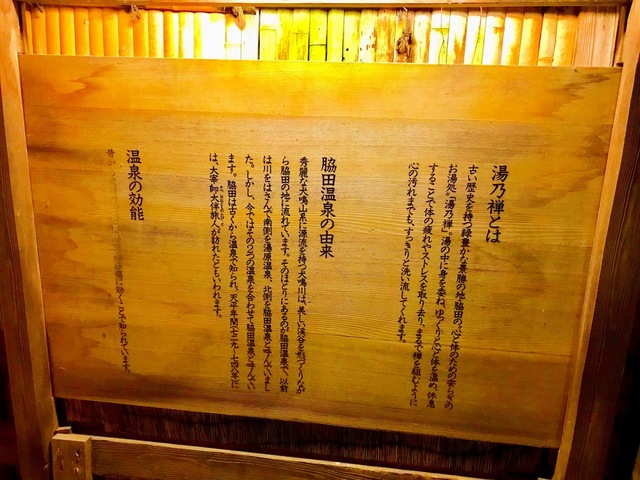 湯乃禅とは
古い歴史を持つ緑豊かな景勝の地脇田の、心と体のための安らぎの
お湯処「湯乃禅」。湯の中に身を委ね、ゆっくりと心と体を温め、休息
することで体の疲れやストレスを取り去り、まるで禅を組むように
心の汚れまでも、すっきりと洗い流してくれます。
脇田温泉の由来
秀麗な犬鳴山系に源流を持つ犬鳴川は、美しい渓谷を形づくりなが
ら脇田の地に流れています。そのほとりにあるのが脇田温泉で、以前
は川をはさんで南側を湯原温泉、北側を脇田温泉と呼んでいまし
た。しかし、今ではその2つの温泉を合わせて脇田温泉と呼んでい
ます。脇田は古くから温泉で知られ、天平年間(七二九〜七四八年)に
は、大宰帥大伴旅人が訪れたともいわれます。
温泉の効能
昔から
に効くことで知られています。